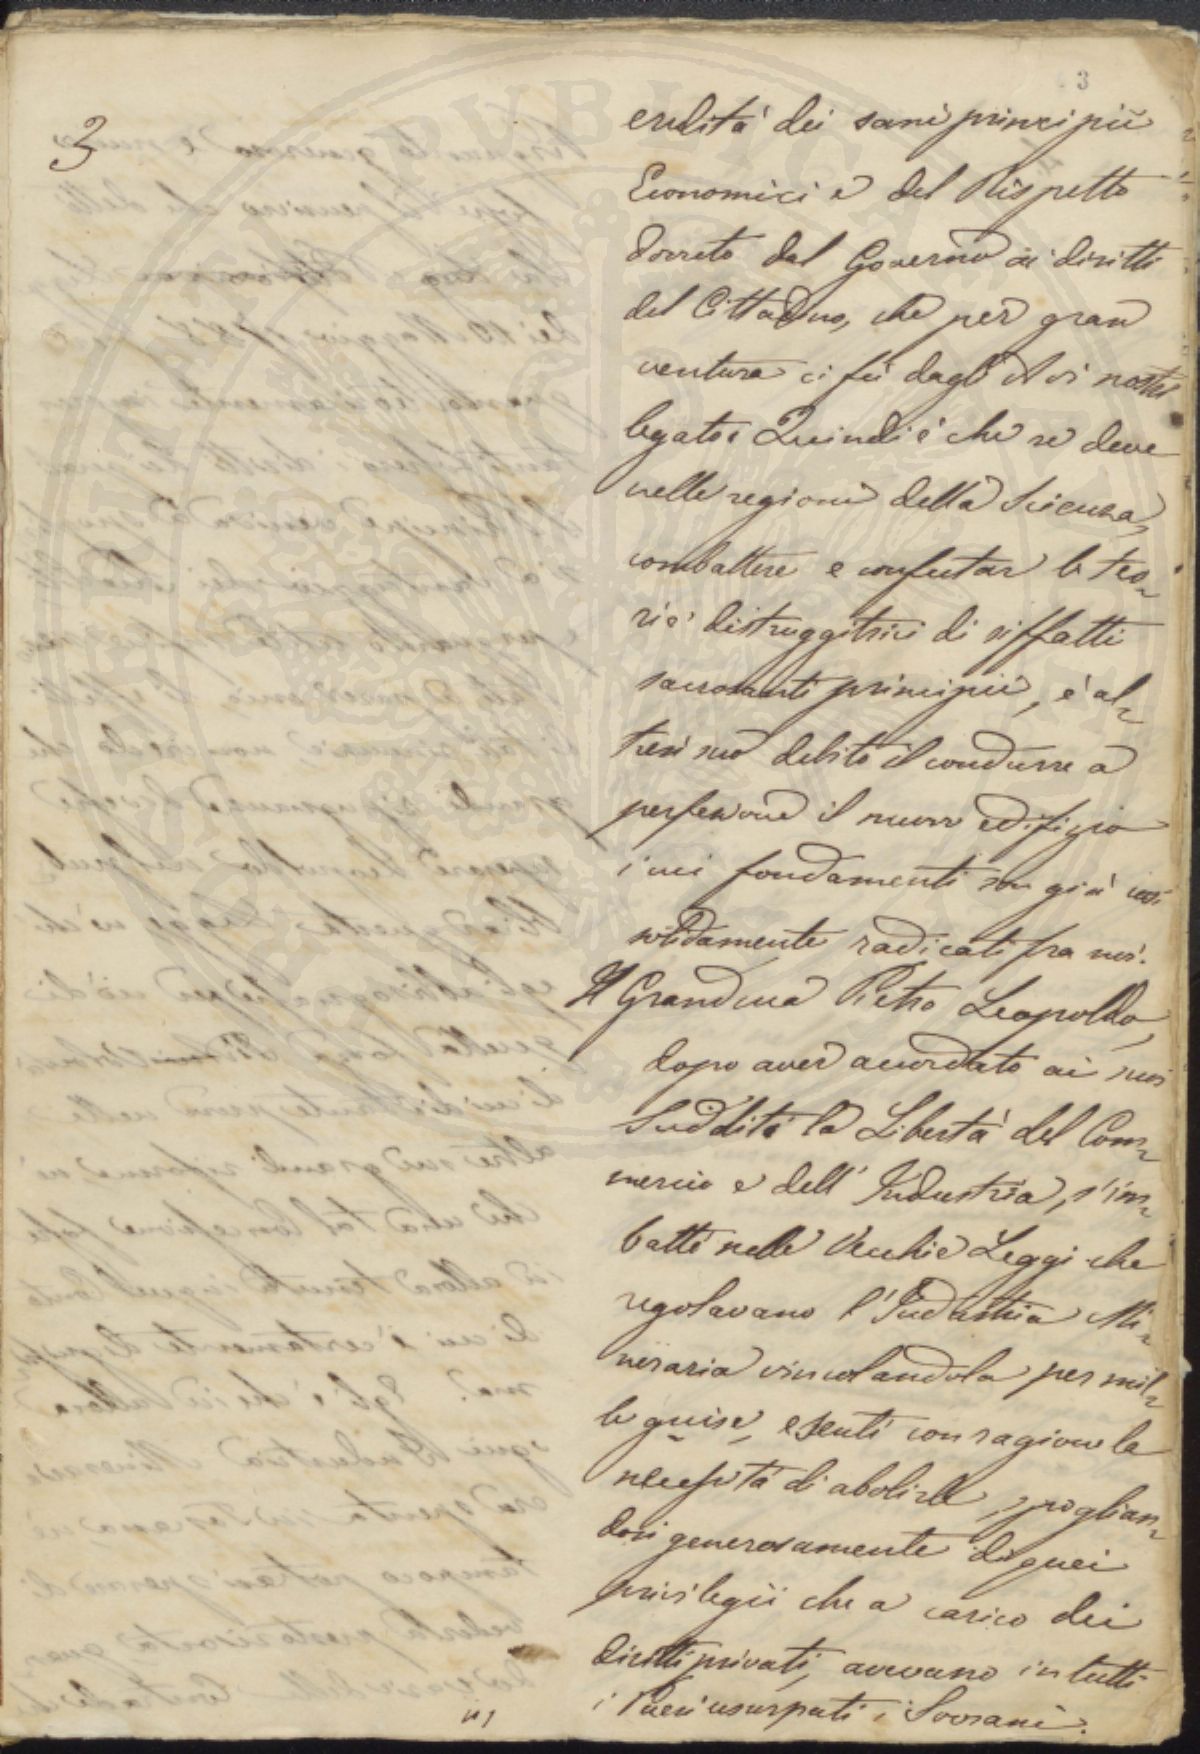 3
3
eredità dei sani principii
Economici e del Rispetto
dovuto dal Governo ai diritti
del Cittadino, che per gran
ventura ci fù dagli Avi nostri
legato: Quindi è che se deve
nelle regioni della Scienza,
combattere e confutar le teo-
rie distruggitrici di siffatti
sacrosanti principii, è al-
tresì suo debito il condurre a
perfezione il nuovo edifizio
i cui fondamenti son già così
solidamente radicati fra noi.
Il Granduca Pietro Leopoldo,
dopo aver accordato ai suoi
Sudditi la Libertà del Com-
mercio e dell' Industria, s'im-
battè nelle Vecchie Leggi che
regolavano l'Industria Mi-
neraria vincolandola per mil-
le guise, e sentì con ragione la
necessità di abolirle, spoglian-
dosi generosamente di quei
privilegii che a carico dei
diritti privati, avevano in tutti
i Paesi usurpati i Sovrani.